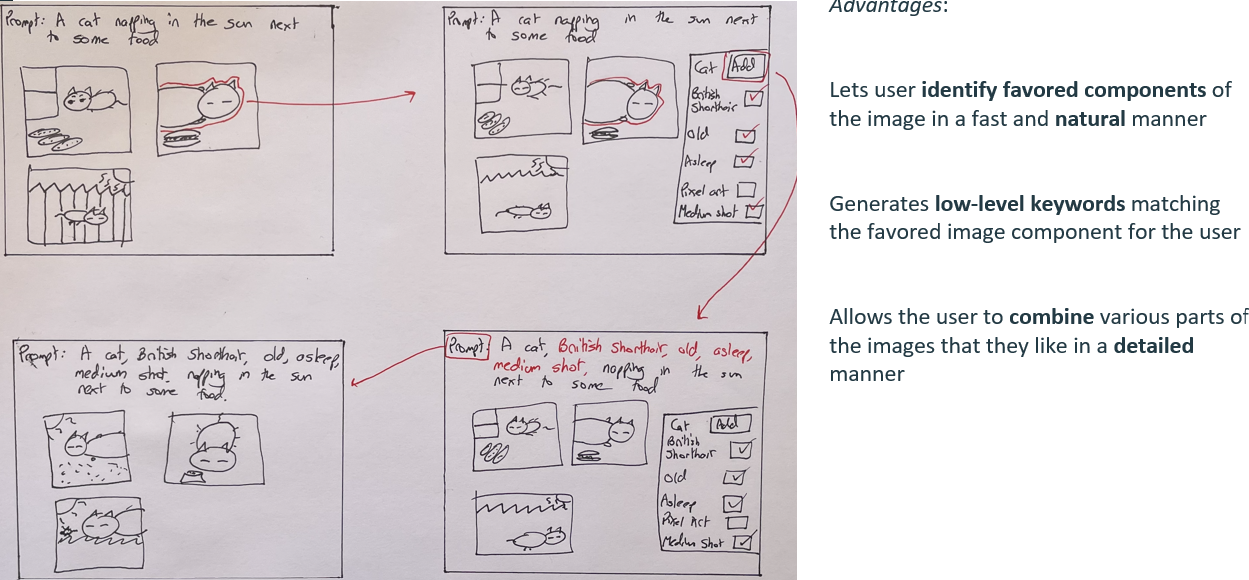 Prompt: A cat napping in the sun next
to some food
Prompt: A cat napping in the sun next
to some food
Cat Add
British
Shorthair
Old
Asleep
Pixel art
Medium shot
Prompt: A cat, British Shorthair, old, asleep,
medium shot, napping in the sun
next to some food.
Prompt: A cat, British Shorthair, old, asleep,
medium shot, napping in the sun
next to some food
Cat Add
British
Shorthair
Old
Asleep
Pixel Art
Medium Shot
Advantages:
Lets user identify favored components of
the image in a fast and natural manner
Generates low-level keywords matching
the favored image component for the user
Allows the user to combine various parts of
the images that they like in a detailed
manner